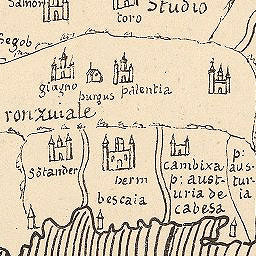 Samor
toro
Studio
Segob
giagno
burgus
palentia
ronzuiale
sötander
berm
bescaia
cambixa
p: aust-
uria de
cabesa
p:
aus-
tur-
ia